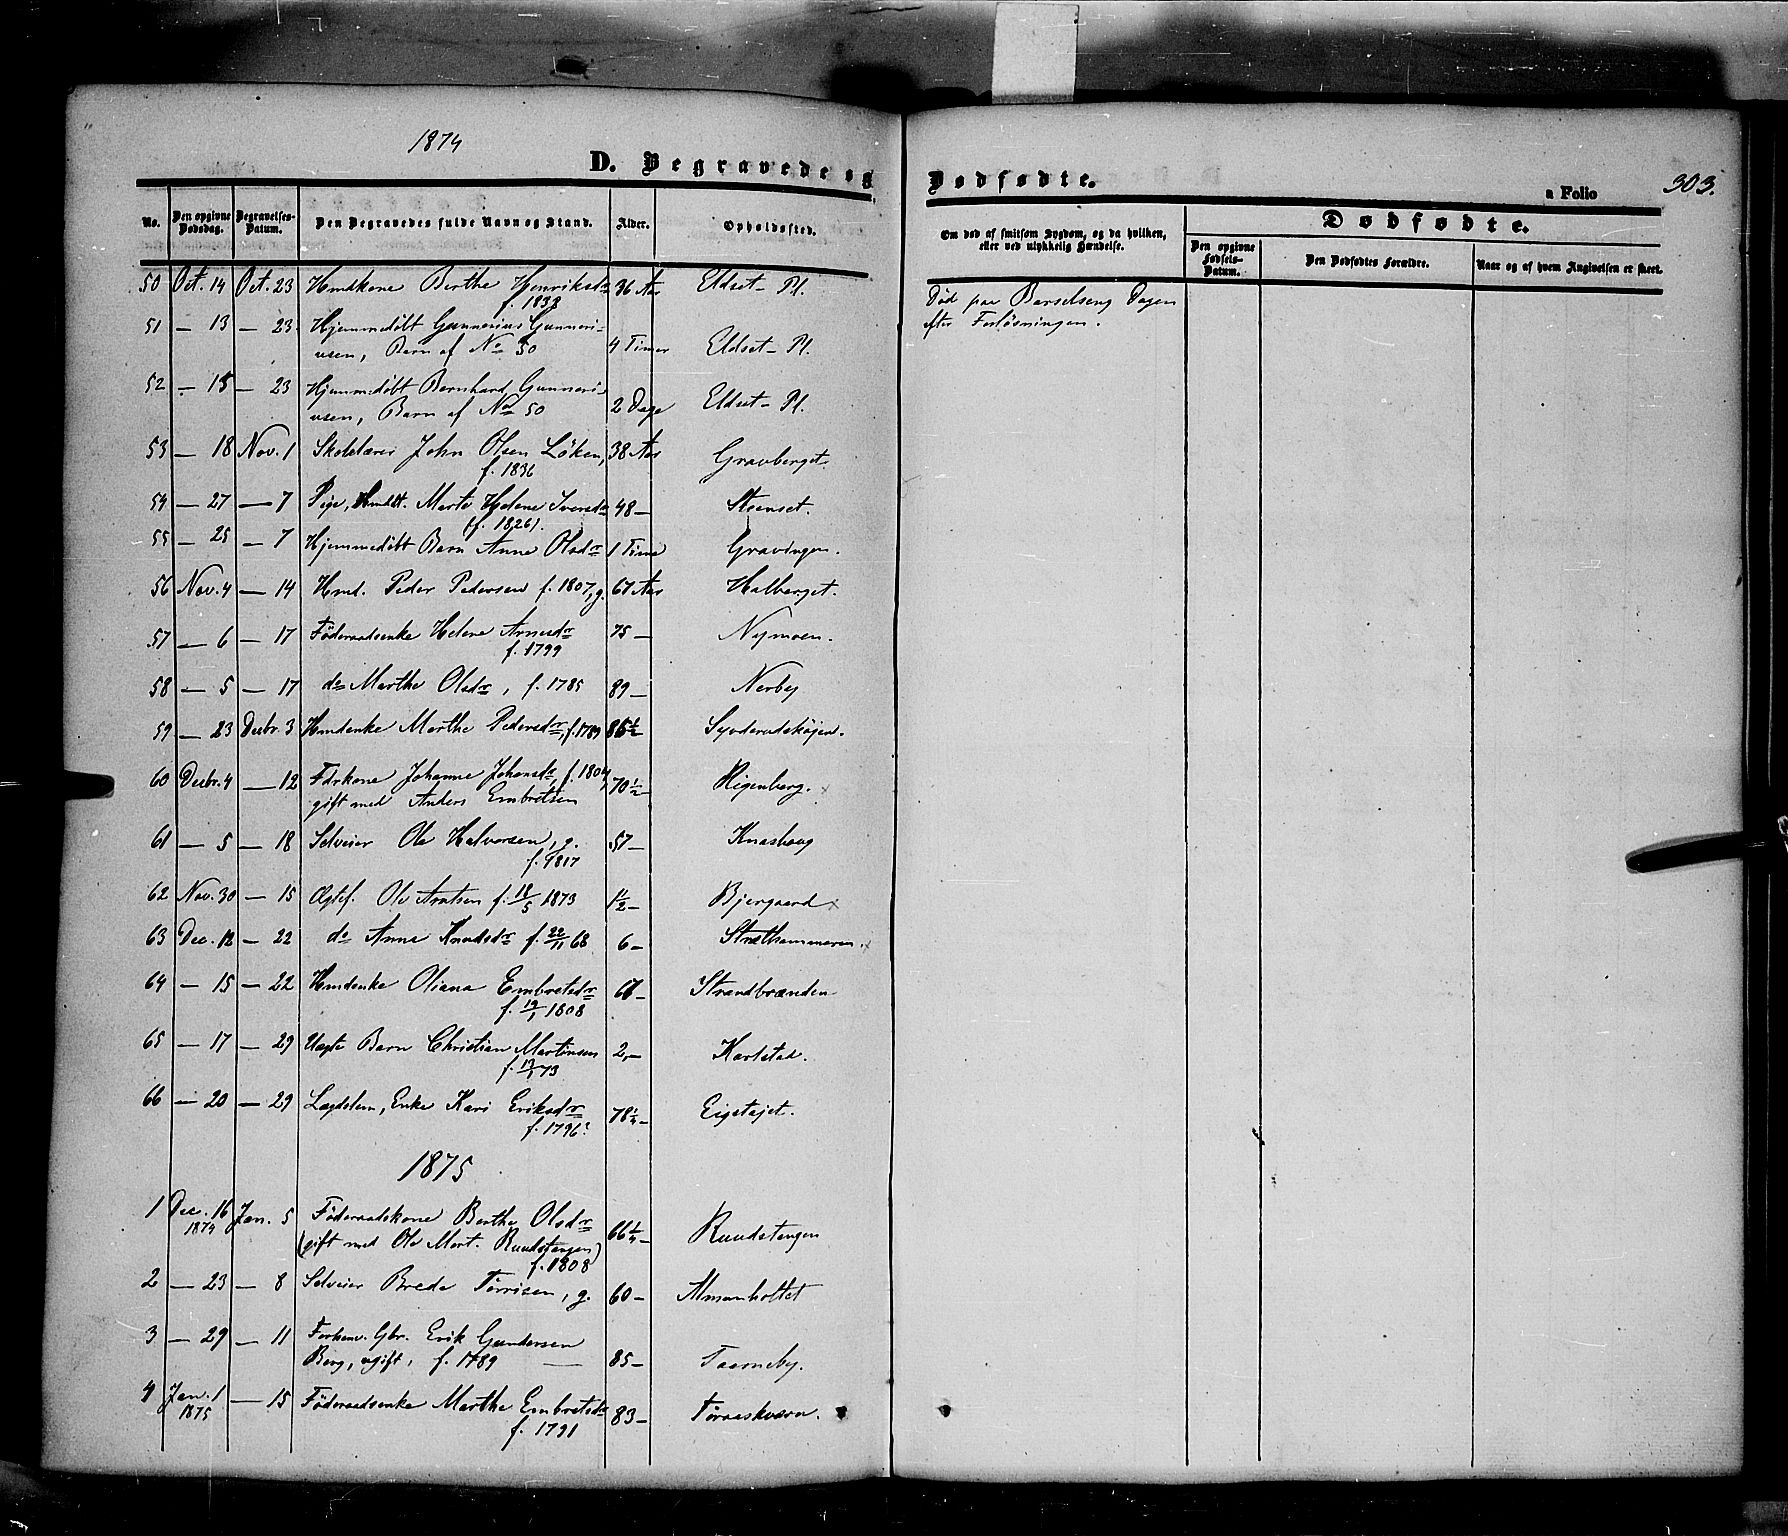 1874
D. Begravede og Dødfødte.
a Folio 303.
No. Den opgivne Dødsdag. Begravelses-Datum. Den Begravedes fulde Navn og Stand. Alder. Opholdssted. Om død af smitsom Sygdom, og da hvilken, eller ved ulykkelig Hændelse. Dødfødte.
Den opgivne Fødsels-Datum. Den Dødfødtes Forældre. Naar og af hvem Angivelsen er skeet.
50 Oct. 14 Oct. 23 Hmdkone Berthe Henriksdr 36 Aar Eldset Pl. Død paa Barselseng Dagen
f. 1838 efter Forløsningen.
51 — 13 — 23 Hjemmedøbt Gunnerius Gunneri-
usen, Barn af No 50 4 Timer Eldset Pl.
52 - 15 — 23 Hjemmedøbt Bernhard Gunneri-
usen, Barn af No 50 2 Dage Eldset Pl.
53 — 18 Nov. 1 Skolelærer John Olsen Löken, 38 Aar Gravberget
f. 1836
54 — 27 — 7 Pige, Marte Helene Iversdr 48 — Steenset.
(f. 1826).
55 — 25 — 7 Hjemmedøbt Barn Anne Olsdr 1 Time Gravingen.
56 Nov. 4 — 14 Hmd. Peder Pedersen f. 1807, g. 67 Aar Halberget.
57 — 6 — 17 Föderaadsenke Helene Arnesdr 75 — Nymoen.
f. 1799
58 — 5 — 17 do Marthe Olsdr, f. 1785 89 — Nerby
59 — 23 Decbr. 3 Hmdenke Marthe Pedersdr, f. 1789 85½
60 Decbr. 4 — 12 Fdrkone Johanne Johansdr, f. 1804, 70½ Rigenberg.
gift med Anders Embretsen
61 — 5 — 18 Selveier Ole Halvorsen, g. 57 — Knashaug
f. 1817
62 Nov. 30 — 15 Ægtef. Ole Arntsen f. 18/5 1873 1½ — Bjergaard
63 Dec. 12 — 22 do Anne Knudsdr f. 22/11 68 6 — Stræthammeren.
64 — 15 — 22 Hmdenke Oliana Embretsdr 67 — Strandbrænden
f. 19/1 1808
65 — 17 — 29 Uægte Barn Christian Martinsen 2, — Karlstad.
f. 13/1 73
66 — 20 — 29 Lægdslem, Enke Kari Eriksdr 78¼ — Eigstøjet.
f. 1796?
1875
1 Dec. 16 Jan. 5 Föderaadskone Berthe Olsdr
1874 (gift med Ole Mort. Ruudstangen) 66¼ — Ruudstangen
f. 1808
2 — 23 — 8 Selveier Brede Tørrisen, g. 60 — Almanholtet
3 — 29 — 11 Forhenv. Gbr. Erik Gundersen
Berg, ugift, f. 1789 — 85 — Taarneby.
4 Jan. 1 — 15 Föderaadsenke Marthe Embretsdr 83 — Tøraaskværn.
1875 f. 1791